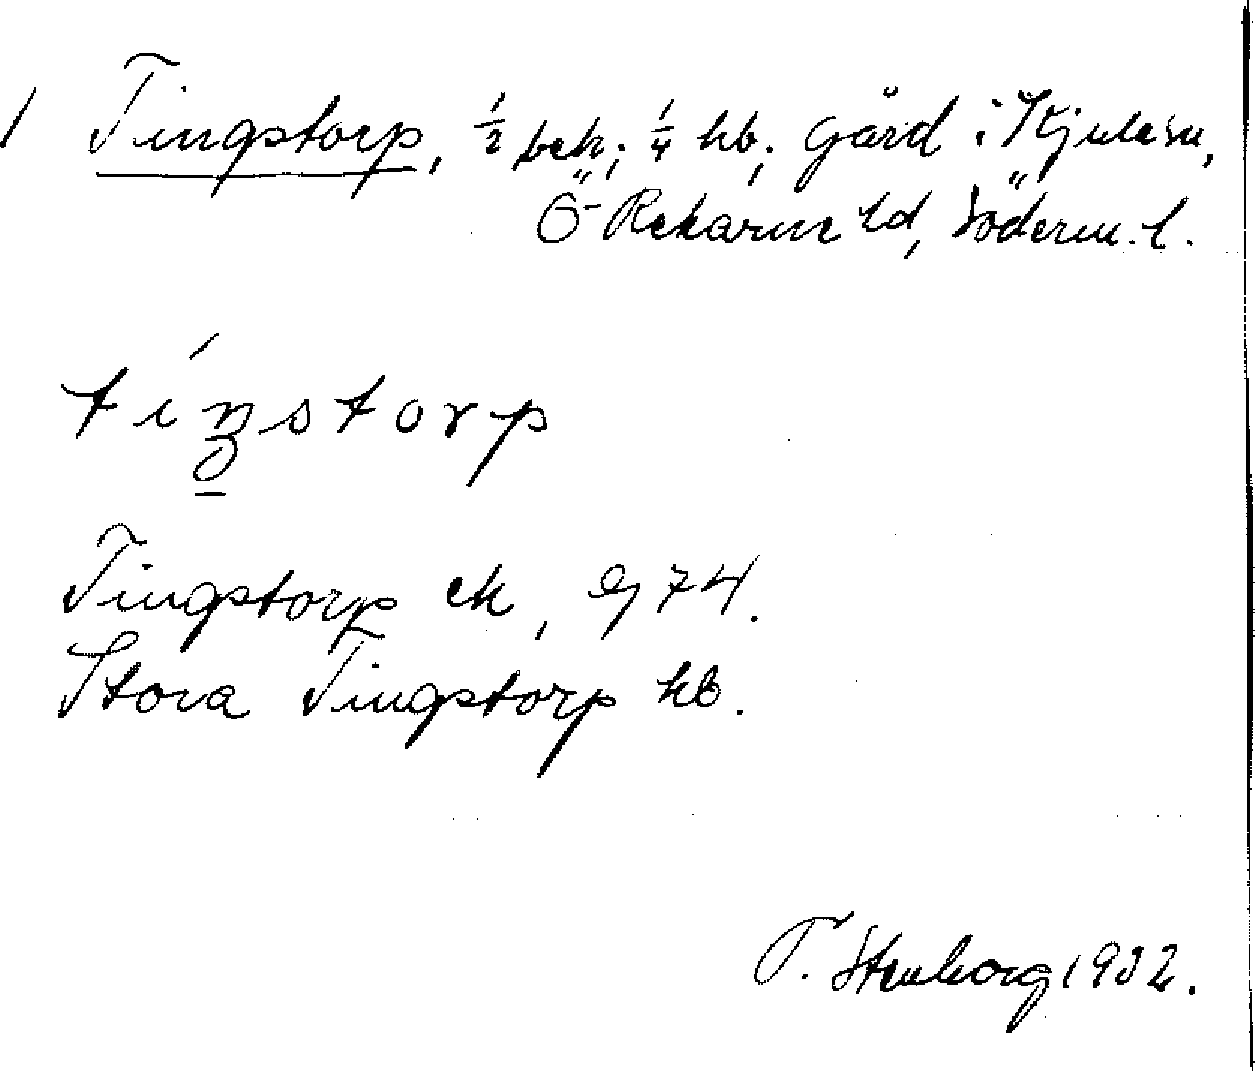 / Tingstorp, 1/2 bek; 1/4 hb; gård i Kjula sn,
Ö-Rekarne hd, Söderm. l.
tíŋstorp
Tingstorp ek, GJ 74.
Stora Tingstorp hb.
T. Stenborg 1932.